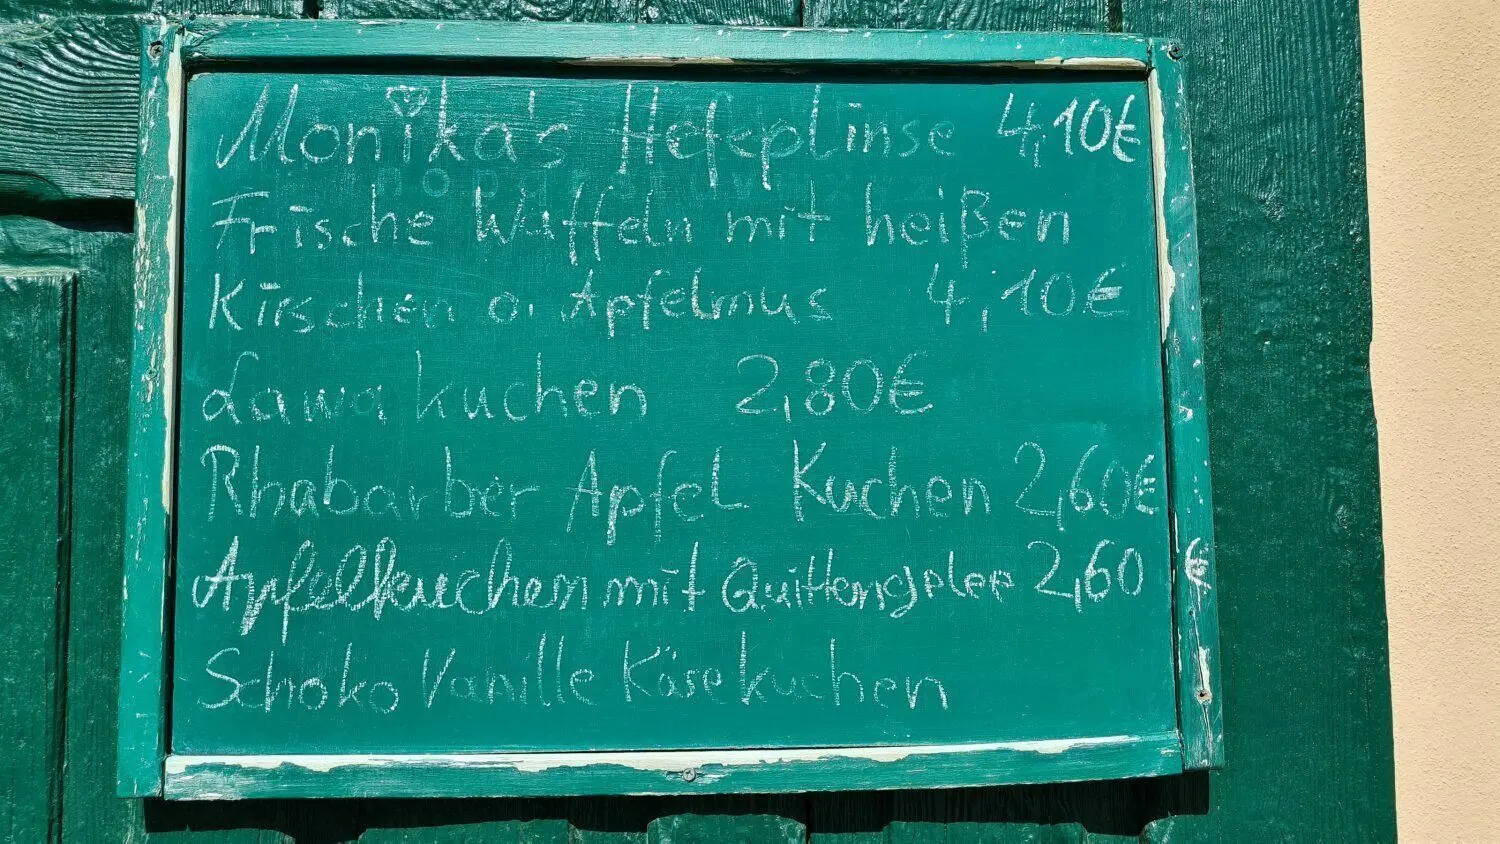 Monika's Hefeplinse 4,10€
Frische Waffeln mit heißen
Kirschen o. Apfelmus 4,10€
Lawakuchen 2,80€
Rhabarber Apfel Kuchen 2,60€
Apfelkuchen mit Quittengelee 2,60 €
Schoko Vanille Käsekuchen